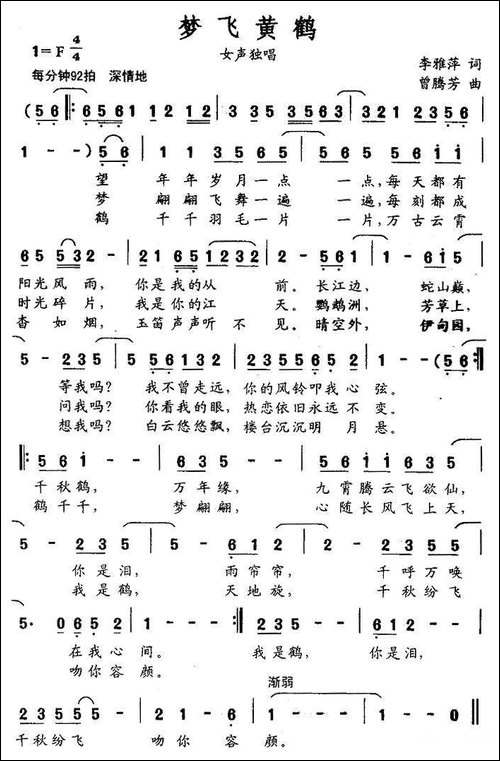 梦飞黄鹤
1=F 4/4
女声独唱
李雅萍 词
每分钟92拍 深情地
曾腾芳 曲
(5 6 |: 6 5 6 1 1 2 1 2 | 3 3 5 3 5 6 3 | 6 3 5 6 5 3 2 |
1 - - ) 5 6 | 1 1 1 1 3 5 6 5 | 5 - 5 6 5 6 i i |
望 年年岁月一点 一点,每天都有
梦 翩翩飞舞一遍 一遍,每刻都成
鹤 千千羽毛一片 一片,万古云霄
6 5 5 3 2 - | 2 1 6 1 5 6 1 2 | 2 - 5 6 1 | - 6 1 5 |
阳光风雨, 你是我的从 前。长江边, 蛇山巅,
时光碎片, 我是你的江 天。鹦鹉洲, 芳草上,
杳如烟, 玉笛声声听不见。晴空外, 伊甸园,
5 - 2 3 5 | 5 5 6 1 3 2 | 2 3 5 6 5 6 2 | 1 - - (5 6 :|
等我吗? 我不曾走远, 你的风铃叩我心弦。
问我吗? 你看我的眼, 热恋依旧永远不变。
想我吗? 白云悠悠飘, 楼台沉沉明月悬。
|: 5 6 1 - | 6 3 5 - | 5 6 i i 6 3 5 |
千秋鹤, 万年缘, 九霄腾云飞欲仙,
鹤千千, 梦翩翩, 心随长风飞上天,
5 - 2 3 5 | 5 - 6 1 2 | 2 - 2 3 5 5 |
你是泪, 雨帘帘, 千呼万唤
我是鹤, 天地旋, 千秋纷飞
5· 0 6 5 2 | 1 - - :| 2 3 5 | 5 - 6 1 2 | 2 -
在我心间。 我是鹤, 你是泪,
吻你容颜。
渐弱
2 3 5 5 5 | 5 - - - | 2 1 - 6 | 1 - - - | 1 - - 0 ‖
千秋纷飞 吻你容颜。